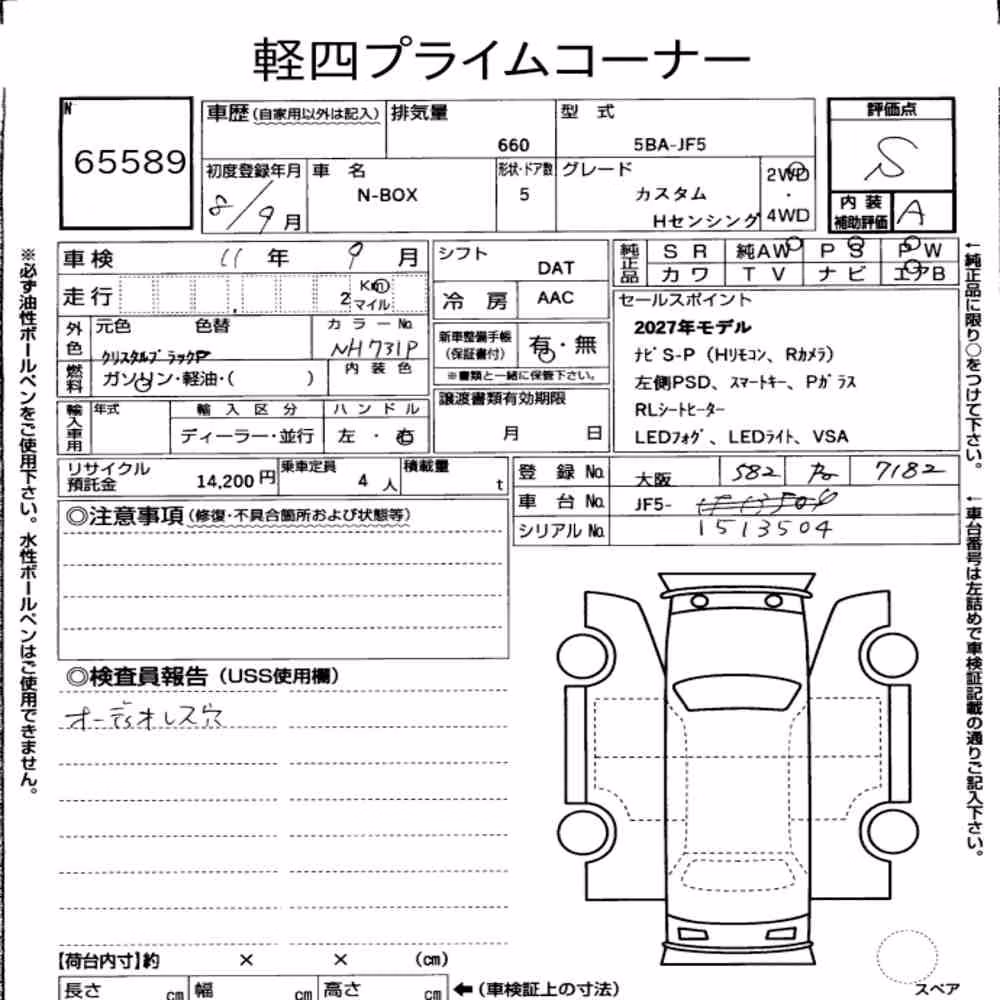 軽四プライムコーナー
N
65589
車歴(自家用以外は記入) 排気量 660 型式 5BA-JF5
評価点 S
内装補助評価 A
初度登録年月 8/9月 車名 N-BOX 形状・ドア数 5 グレード カスタム Hセンシング 2WD・4WD
車検 11年 9月
走行 2 Km マイル
外色 元色 色替 クリスタルブラックP カラーNo. NH731P
燃料 ガソリン・軽油・( ) 内装色
輸入車用 年式 輸入区分 ディーラー・並行 ハンドル 左・右
シフト DAT
冷房 AAC
新車整備手帳(保証書付) 有・無
※書類と一緒に保管下さい。
譲渡書類有効期限 月 日
純正品 SR 純AW PS PW
カワ TV ナビ エアB
セールスポイント
2027年モデル
ナビS-P(Hリモコン、Rカメラ)
左側PSD、スマートキー、Pガラス
RLシートヒーター
LEDフォグ、LEDライト、VSA
リサイクル預託金 14,200円 乗車定員 4人 積載量 t
登録No. 大阪 582 7182
車台No. JF5-
シリアルNo. 1513504
◎注意事項(修復・不具合箇所および状態等)
◎検査員報告(USS使用欄)
オーディオレス穴
【荷台内寸】約 × × (cm)
長さ cm 幅 cm 高さ cm ←(車検証上の寸法)
スペア
※必ず油性ボールペンをご使用下さい。水性ボールペンはご使用できません。
←純正品に限り○をつけて下さい。
←車台番号は左詰めで車検証記載の通りご記入下さい。